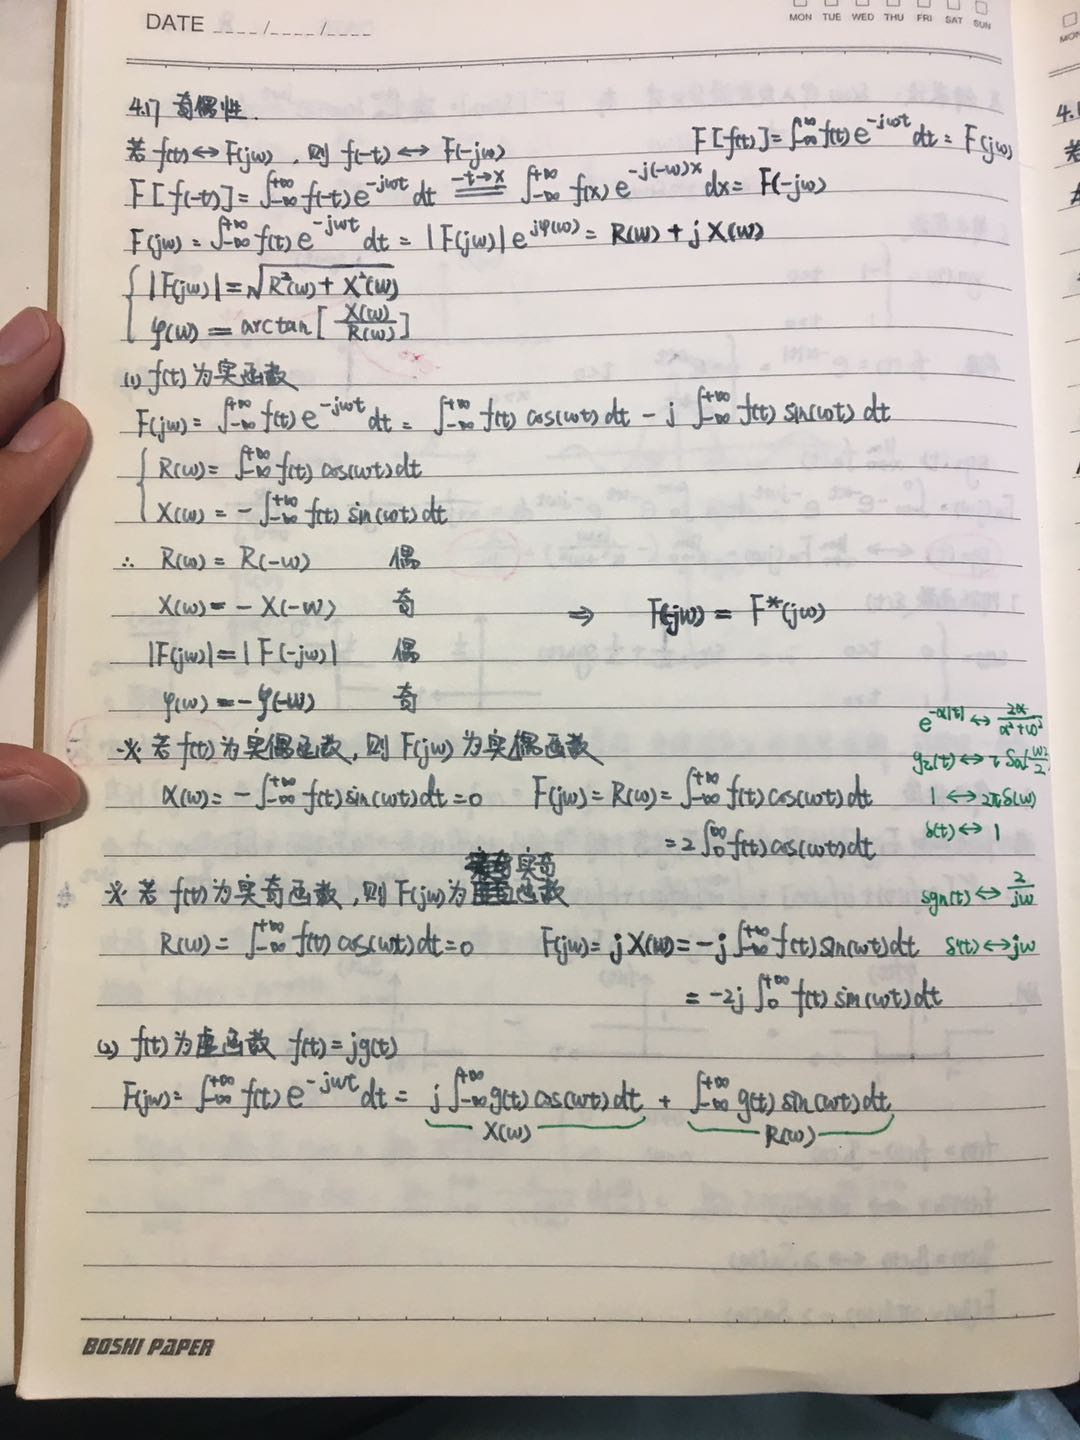 DATE ___/___/___
MON TUE WED THU FRI SAT SUN
4.17 奇偶性.
若 f(t)↔F(jω), 则 f(-t)↔F(-jω)
F[f(t)]=∫_{-∞}^{+∞} f(t)e^{-jωt}dt=F(jω)
F[f(-t)]=∫_{-∞}^{+∞} f(-t)e^{-jωt}dt =(-t→x)= ∫_{-∞}^{+∞} f(x)e^{-j(-ω)x}dx=F(-jω)
F(jω)=∫_{-∞}^{+∞} f(t)e^{-jωt}dt=|F(jω)|e^{jφ(ω)}=R(ω)+jX(ω)
{|F(jω)|=√(R²(ω)+X²(ω))
φ(ω)=arctan[X(ω)/R(ω)]
(1) f(t)为实函数
F(jω)=∫_{-∞}^{+∞} f(t)e^{-jωt}dt=∫_{-∞}^{+∞} f(t)cos(ωt)dt-j∫_{-∞}^{+∞} f(t)sin(ωt)dt
{R(ω)=∫_{-∞}^{+∞} f(t)cos(ωt)dt
X(ω)=-∫_{-∞}^{+∞} f(t)sin(ωt)dt
∴ R(ω)=R(-ω) 偶
X(ω)=-X(-ω) 奇 ⇒ F(-jω)=F*(jω)
|F(jω)|=|F(-jω)| 偶
φ(ω)=-φ(-ω) 奇
e^{-α|t|}↔2α/(α²+ω²)
※ 若f(t)为实偶函数,则F(jω)为实偶函数
g_τ(t)↔τSa(ωτ/2)
X(ω)=-∫_{-∞}^{+∞} f(t)sin(ωt)dt=0 F(jω)=R(ω)=∫_{-∞}^{+∞} f(t)cos(ωt)dt
1↔2πδ(ω)
=2∫_0^{∞} f(t)cos(ωt)dt
δ(t)↔1
※ 若f(t)为实奇函数,则F(jω)为虚奇函数
sgn(t)↔2/jω
R(ω)=∫_{-∞}^{+∞} f(t)cos(ωt)dt=0 F(jω)=jX(ω)=-j∫_{-∞}^{+∞} f(t)sin(ωt)dt
δ'(t)↔jω
=-2j∫_0^{+∞} f(t)sin(ωt)dt
(2) f(t)为虚函数 f(t)=jg(t)
F(jω)=∫_{-∞}^{+∞} f(t)e^{-jωt}dt=j∫_{-∞}^{+∞} g(t)cos(ωt)dt+∫_{-∞}^{+∞} g(t)sin(ωt)dt
X(ω) R(ω)
BOSHI PAPER